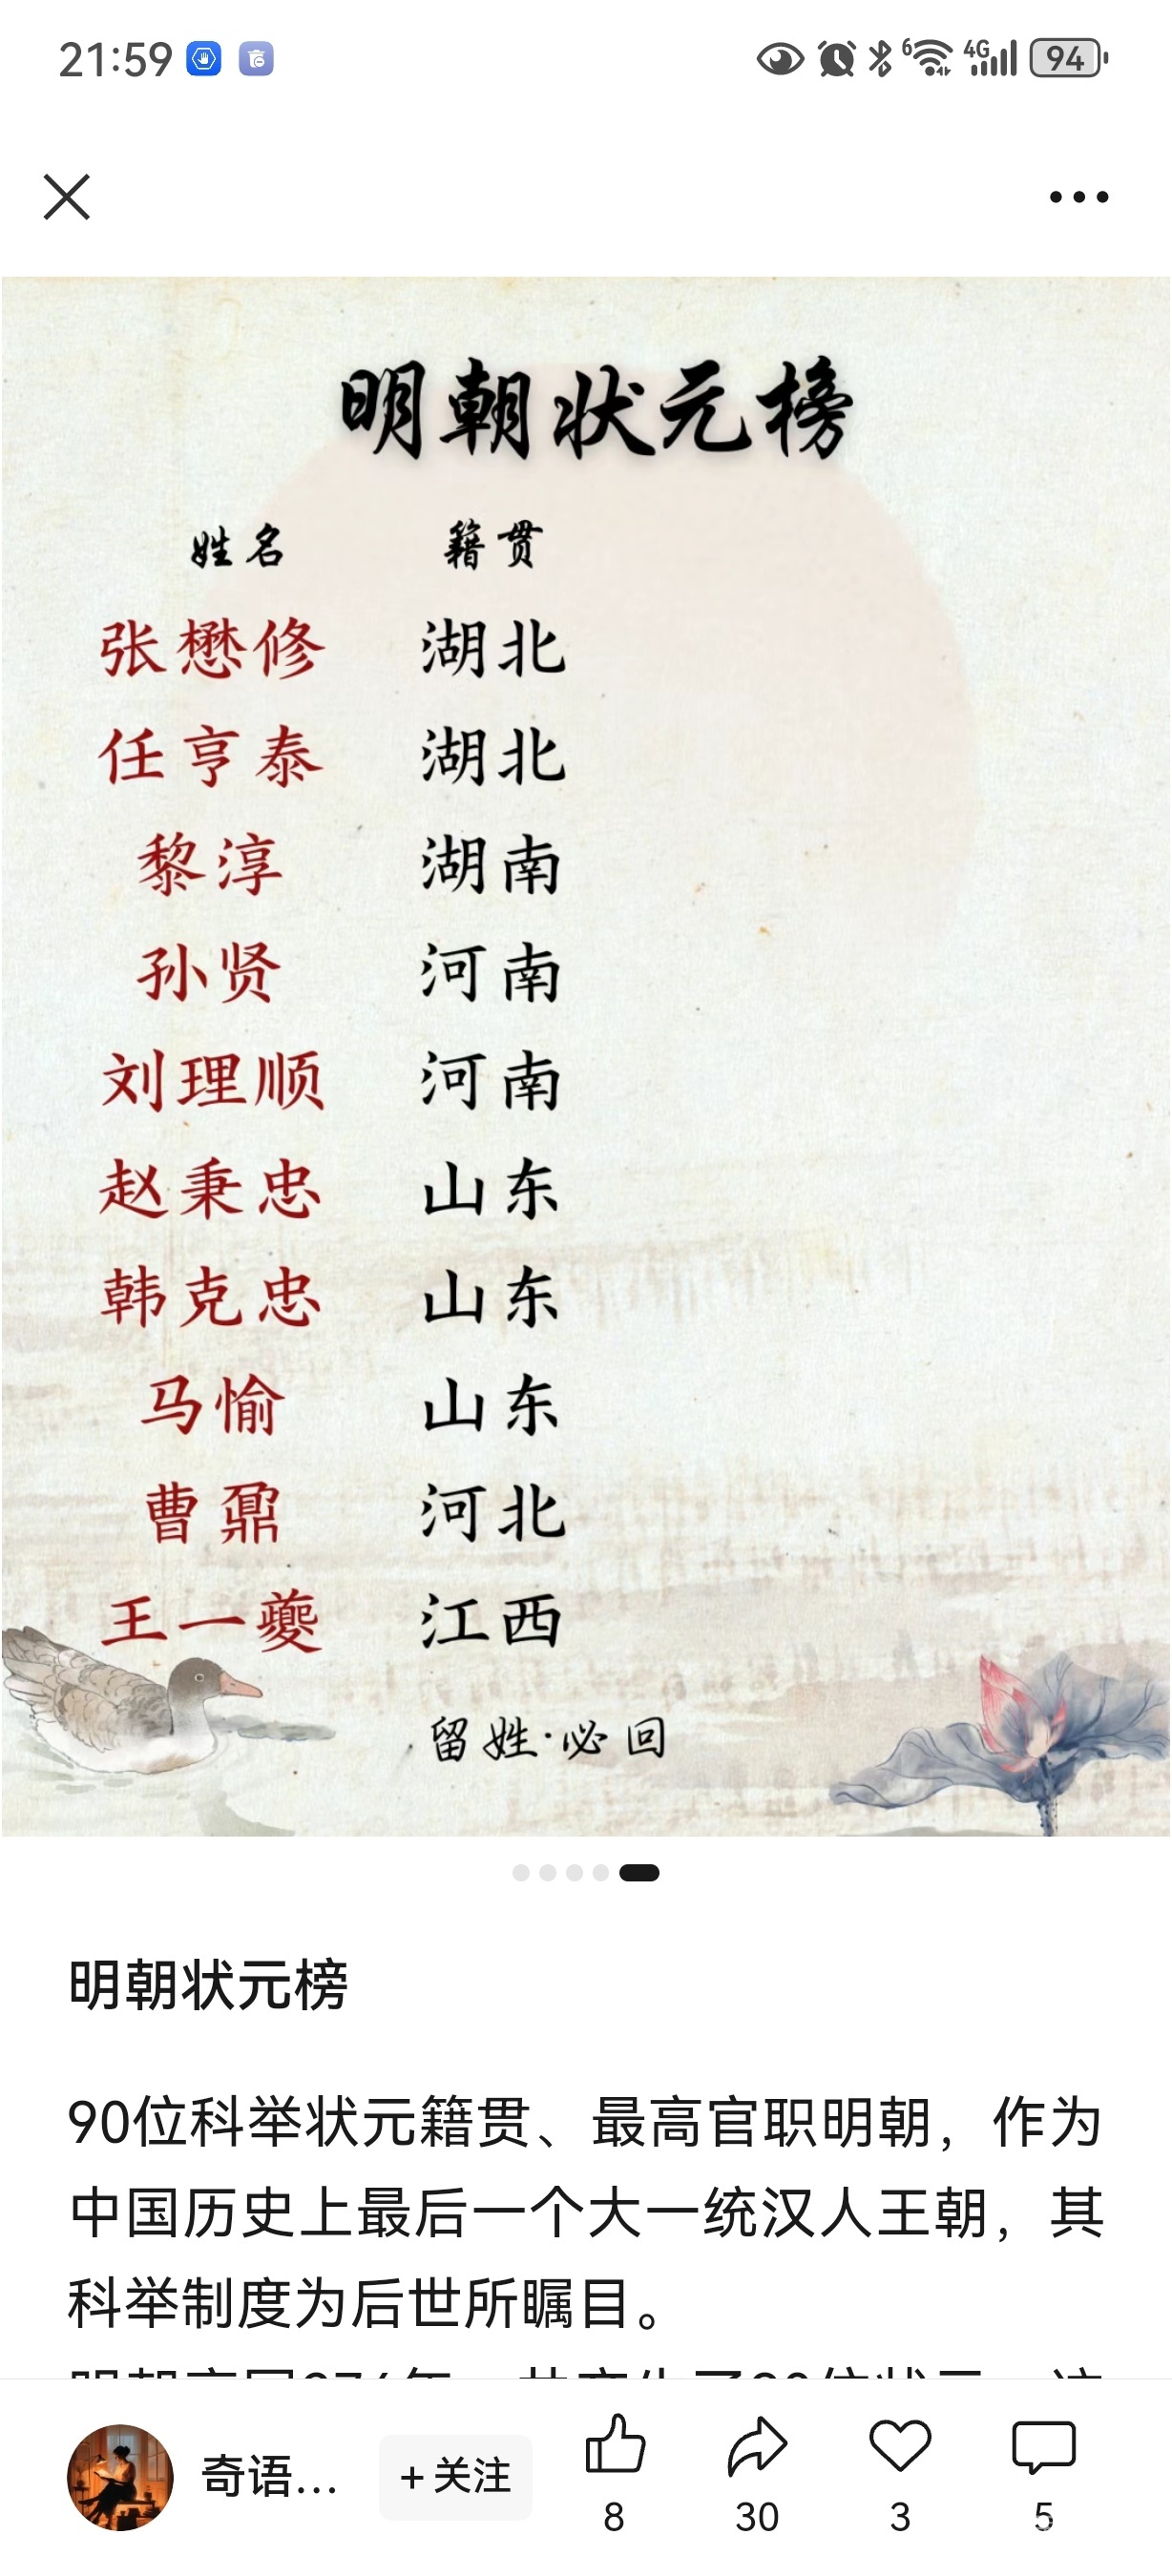 21:59
6 4G 94
明朝状元榜
姓名 籍贯
张懋修 湖北
任亨泰 湖北
黎淳 湖南
孙贤 河南
刘理顺 河南
赵秉忠 山东
韩克忠 山东
马愉 山东
曹鼐 河北
王一夔 江西
留姓·必回
明朝状元榜
90位科举状元籍贯、最高官职明朝，作为
中国历史上最后一个大一统汉人王朝，其
科举制度为后世所瞩目。
奇语... +关注 8 30 3 5